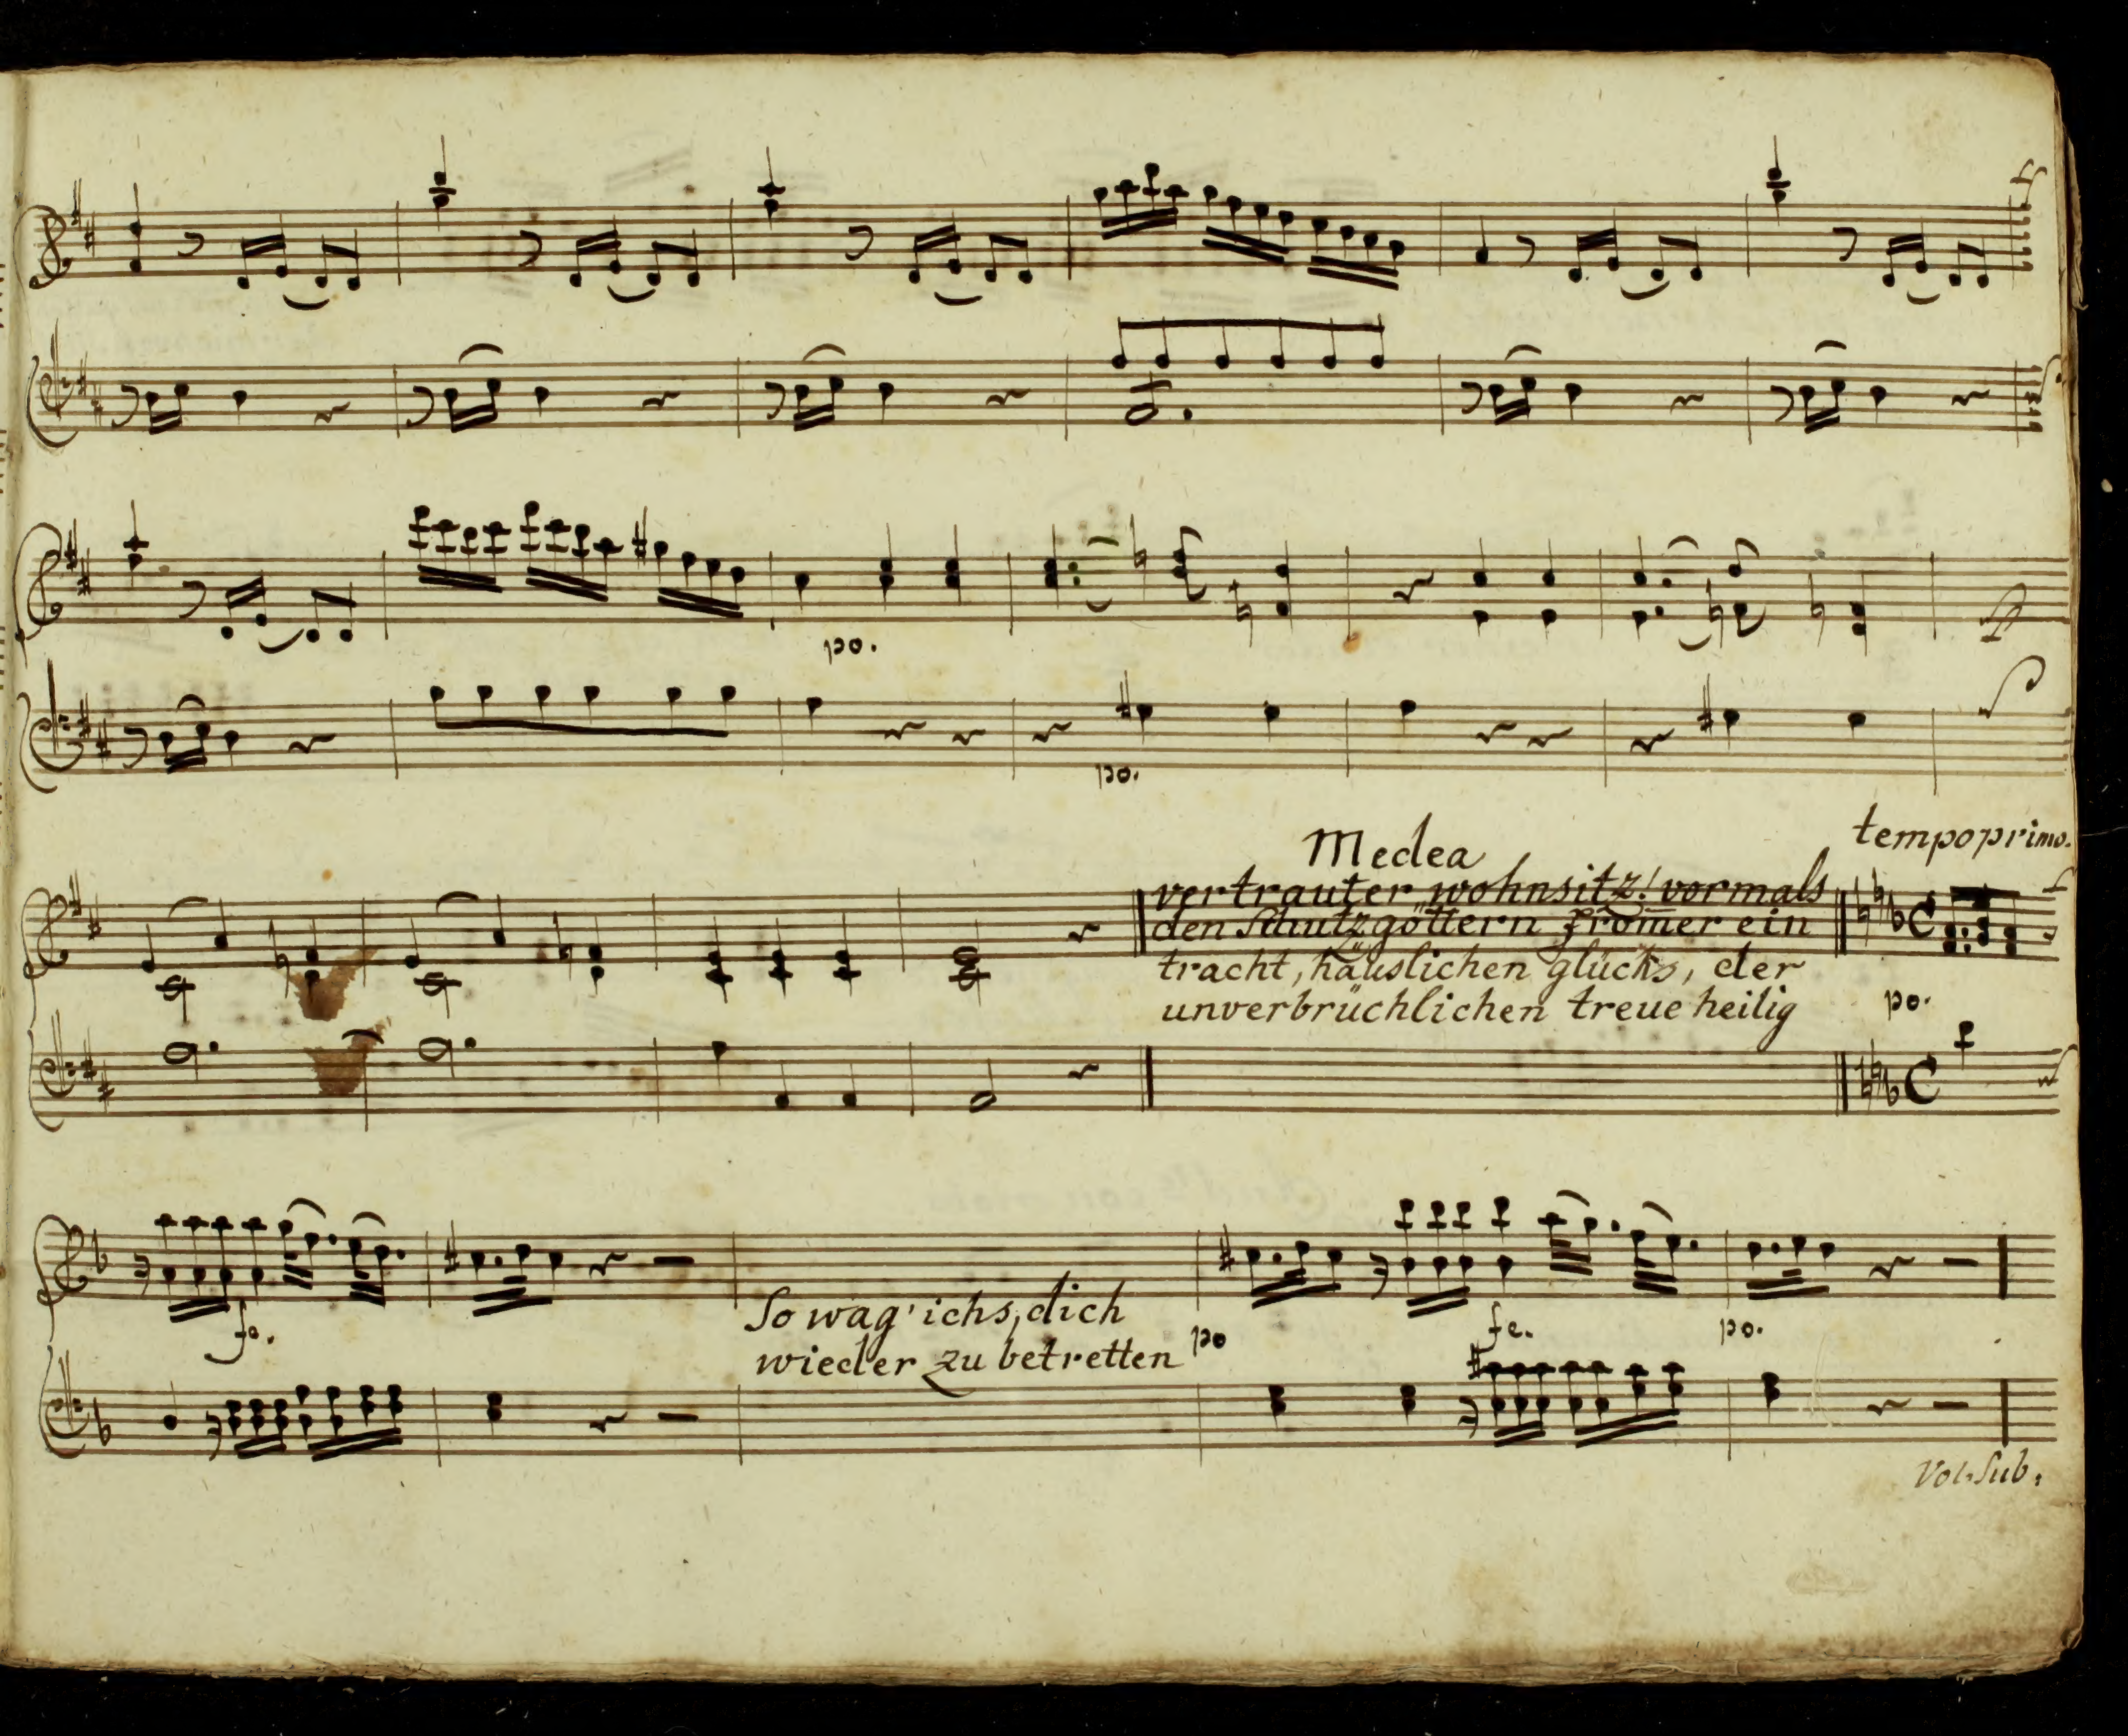 po.
po.
Medea
tempo primo.
vertrauter wohnsitz! vormals
den Schutzgöttern fromer ein
tracht, häuslichen glücks, der
unverbrüchlichen treue heilig
po.
fe.
So wag' ichs, dich
wieder zu betretten
po
fe.
po.
Vol. Sub.